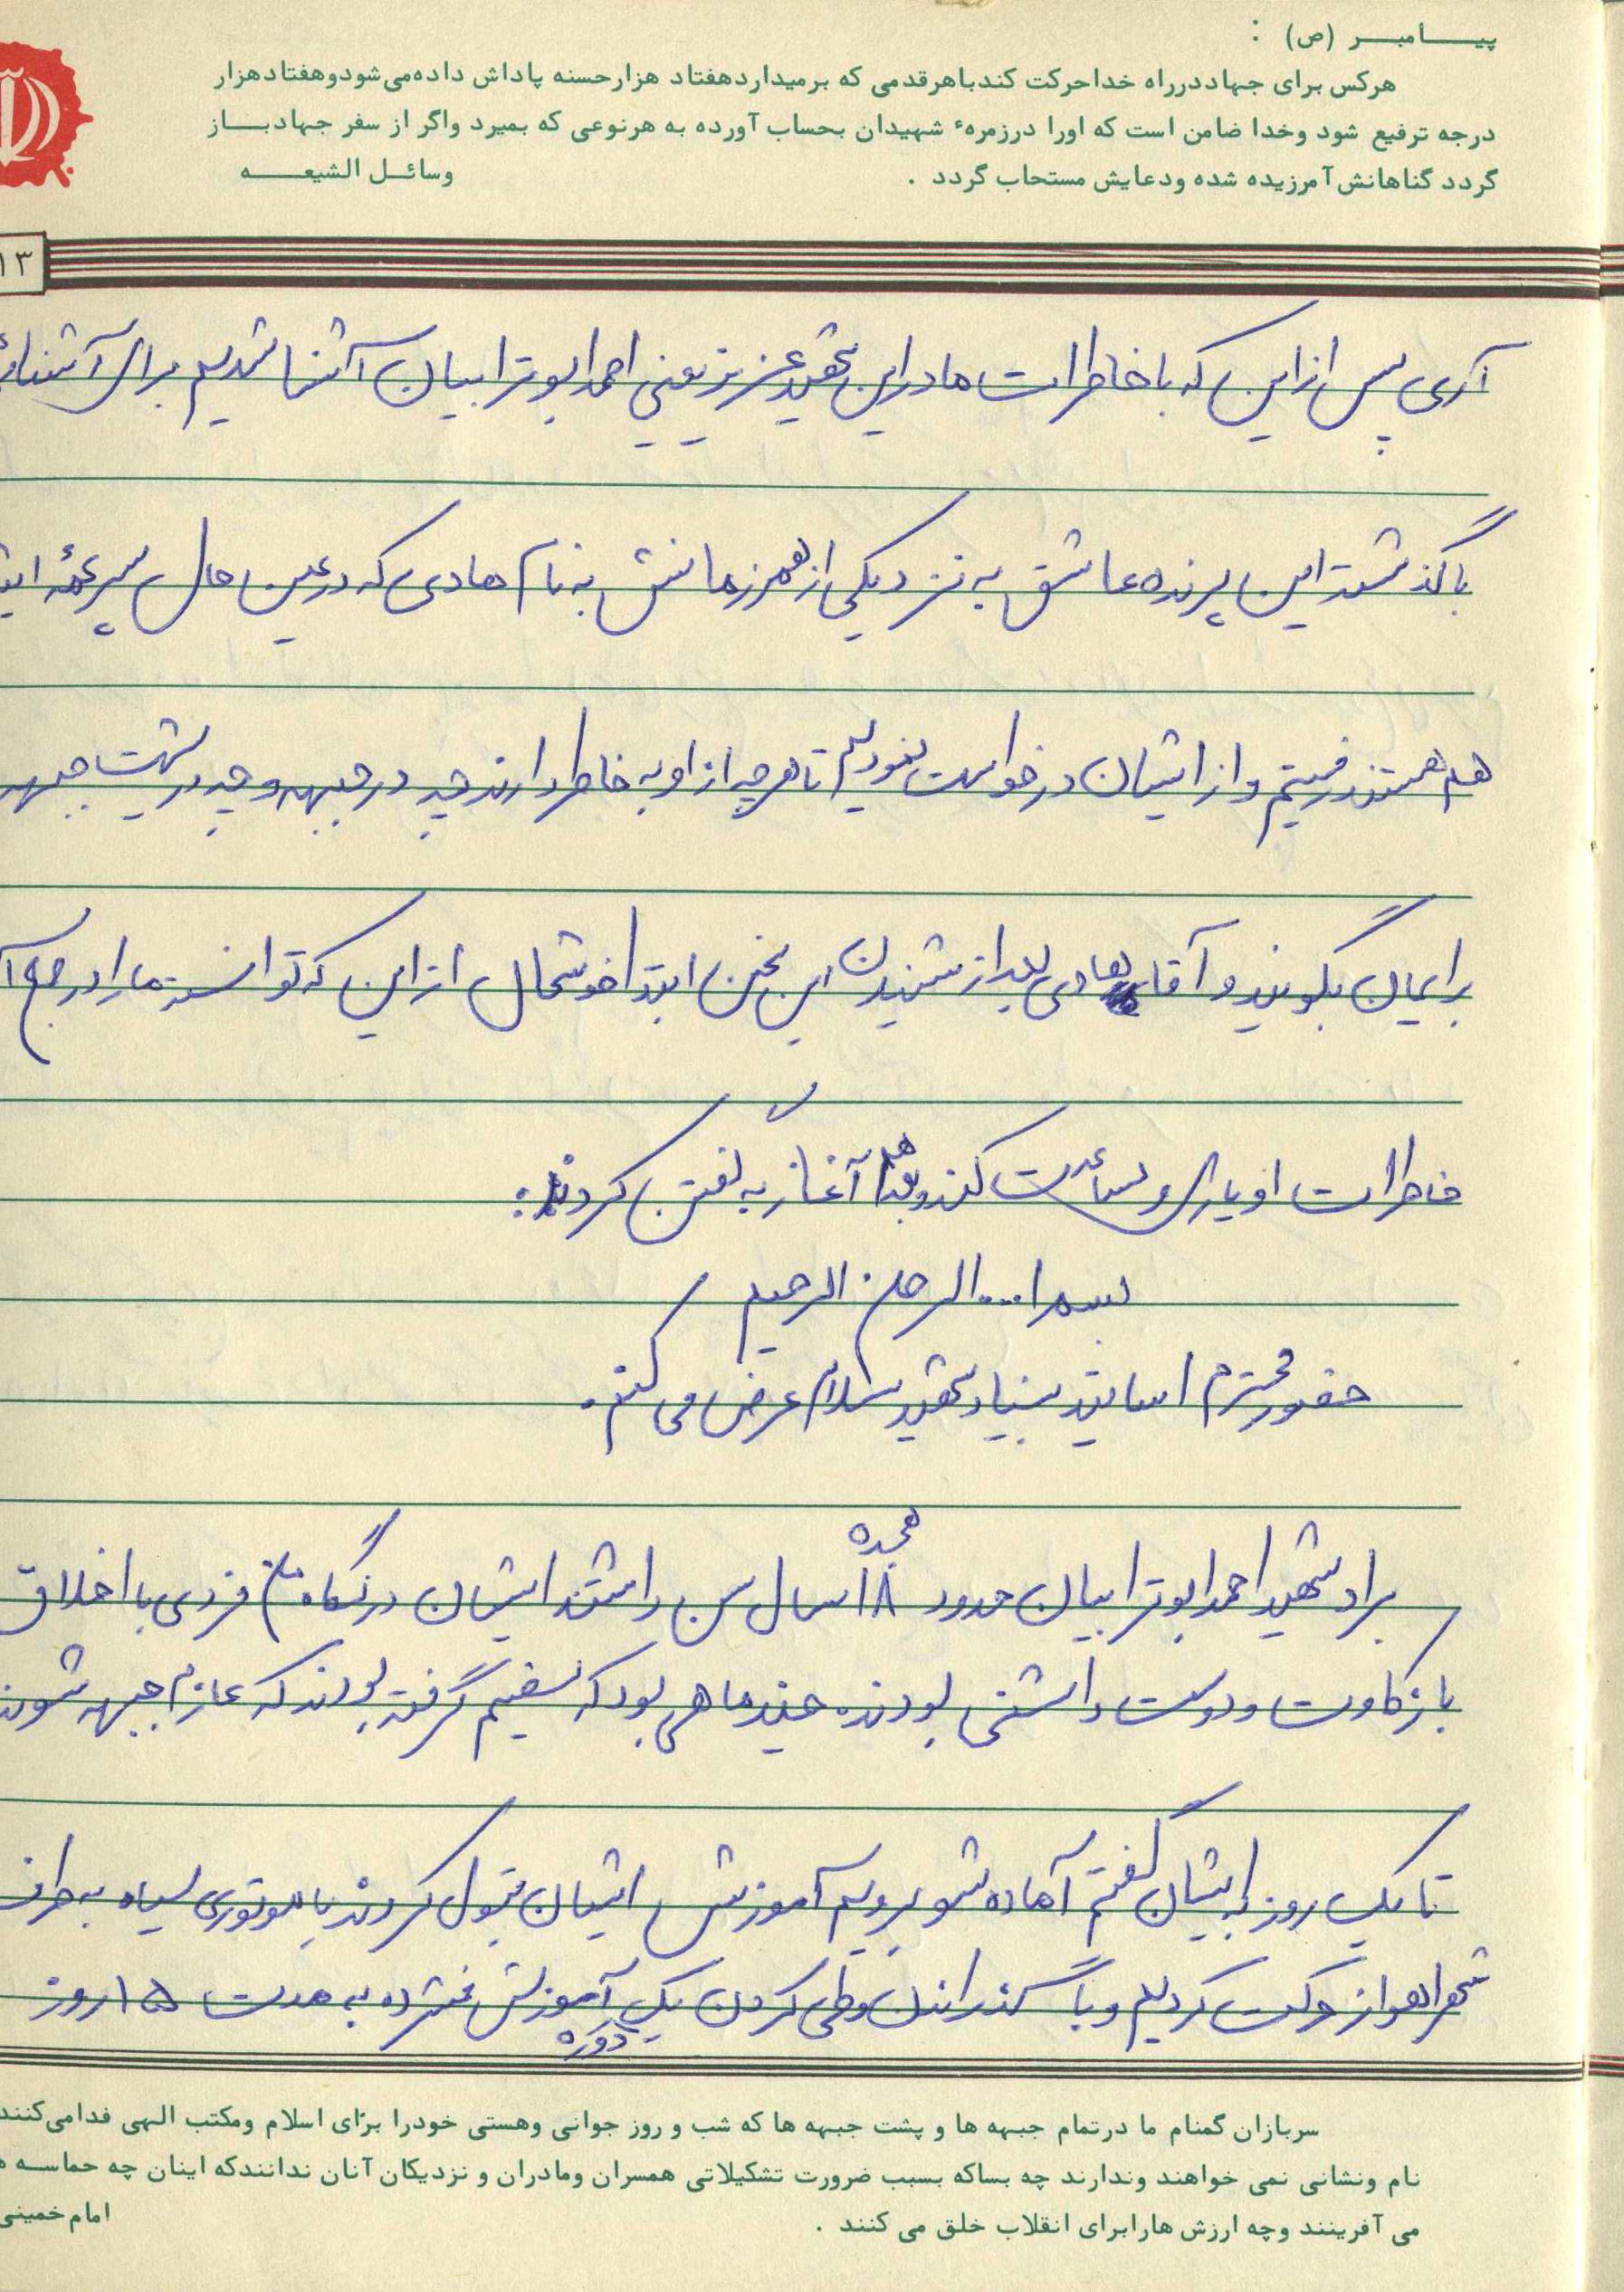 پیـــامبـــر (ص) :
هرکس برای جهاددرراه خداحرکت کندباهرقدمی که برمیداردهفتاد هزارحسنه پاداش داده‌می‌شودوهفتادهزار
درجه ترفیع شود وخدا ضامن است که اورا درزمرهٔ شهیدان بحساب آورده به هرنوعی که بمیرد واگر از سفر جهادبـــاز
گردد گناهانش آمرزیده شده ودعایش مستحاب گردد .
وسائــل الشیعــــه
۱۳
آری پس از این که با خاطرات مادر این شهید عزیز یعنی احمد ابوترابیان آشنا شدیم برای آشنائی
با گذشته این پرنده عاشق به نزد یکی از همرزمانش به نام هادی که در عین حال پسر عمهٔ
هم هستند رفتیم و از ایشان درخواست نمودیم تا هر چه از او به خاطر دارند چه در جبهه و چه در پشت جبهه
برایمان بگویند و آقای هادی بعد از شنیدن این سخن ابتدا خوشحال از این که توانسته ما را در جمع
خاطرات او یاری و مساعدت کند و بعد هم آغاز به گفتن کردند:
بسم ا... الرحمن الرحیم
حضور محترم اساتید بنیاد شهید سلام عرض می کنم.
برادر شهید احمد ابوترابیان حدود ۱۸ هجده سال سن داشتند ایشان در نگاه من فردی با اخلاق
با زکاوت و دوست داشتنی بودند. چند ماهی بود که تصمیم گرفته بودند که عازم جبهه شوند
تا یک روز به ایشان گفتم آماده شو برویم آموزش ایشان قبول کردند با موتوری سیاه به طرف
شهر اهواز حرکت کردیم و با گذراندن و طی کردن یک دوره آموزش فشرده به مدت ۱۵ روز
سربازان گمنام ما درتمام جبهه ها و پشت جبهه ها که شب و روز جوانی وهستی خودرا برای اسلام ومکتب الهی فدامی‌کنند
نام ونشانی نمی خواهند وندارند چه بساکه بسبب ضرورت تشکیلاتی همسران ومادران و نزدیکان آنان ندانندکه اینان چه حماســه
می آفرینند وچه ارزش هارابرای انقلاب خلق می کنند .
امام‌خمینی